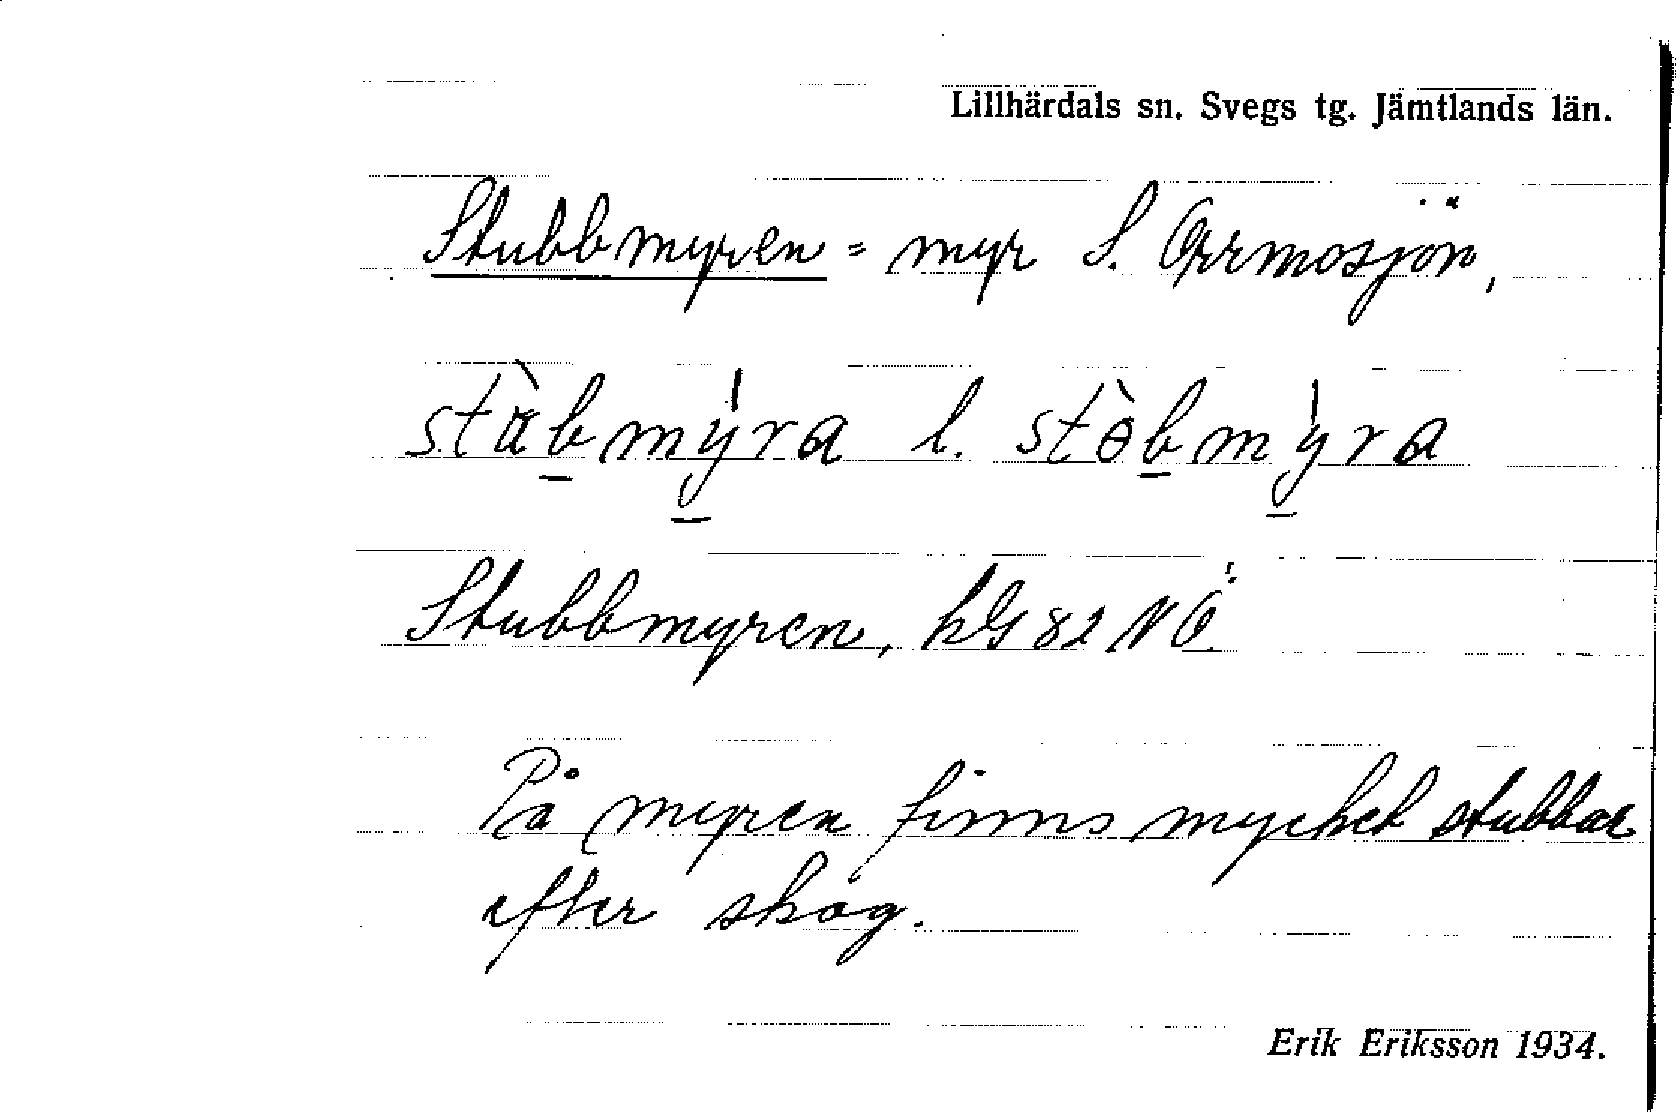 Lillhärdals sn. Svegs tg. Jämtlands län.
Stubbmyren = myr S. Orrmosjön,
stὰbmy̍ra l. stòbmy̍ra
Stubbmyren, kG 82 NÖ
På myren finns mycket stubbar
efter skog.
Erik Eriksson 1934.